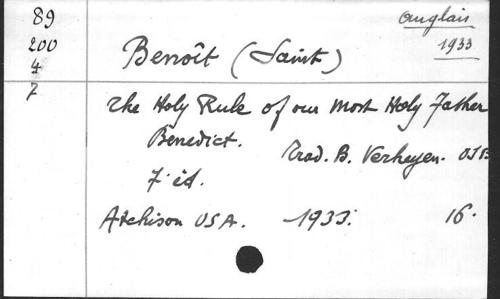 89
200
4
7
anglais
1933
Benoît (Saint)
The Holy Rule of our Most Holy Father
Benedict. Trad. B. Verheyen. OSB
7 éd.
Atchison USA. 1933. 16.